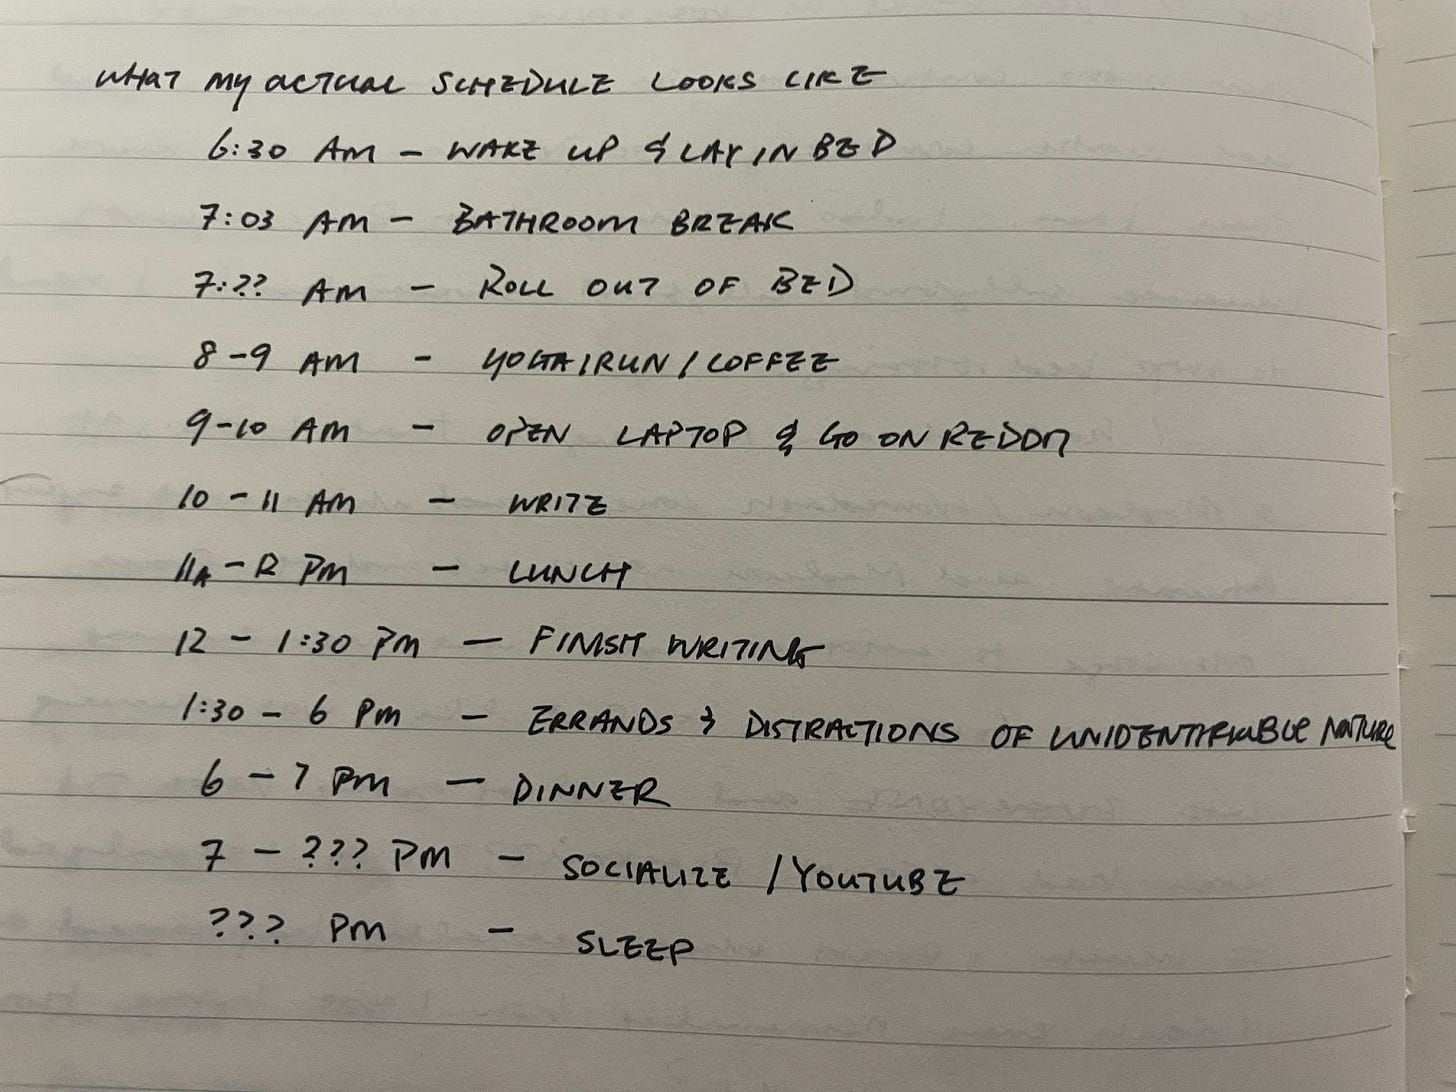 WHAT MY ACTUAL SCHEDULE LOOKS LIKE
6:30 AM - WAKE UP & LAY IN BED
7:03 AM - BATHROOM BREAK
7:?? AM - ROLL OUT OF BED
8-9 AM - YOGA/RUN/COFFEE
9-10 AM - OPEN LAPTOP & GO ON REDDIT
10-11 AM - WRITE
11A-12 PM - LUNCH
12-1:30 PM - FINISH WRITING
1:30-6 PM - ERRANDS & DISTRACTIONS OF UNIDENTIFIABLE NATURE
6-7 PM - DINNER
7-??? PM - SOCIALIZE/YOUTUBE
??? PM - SLEEP